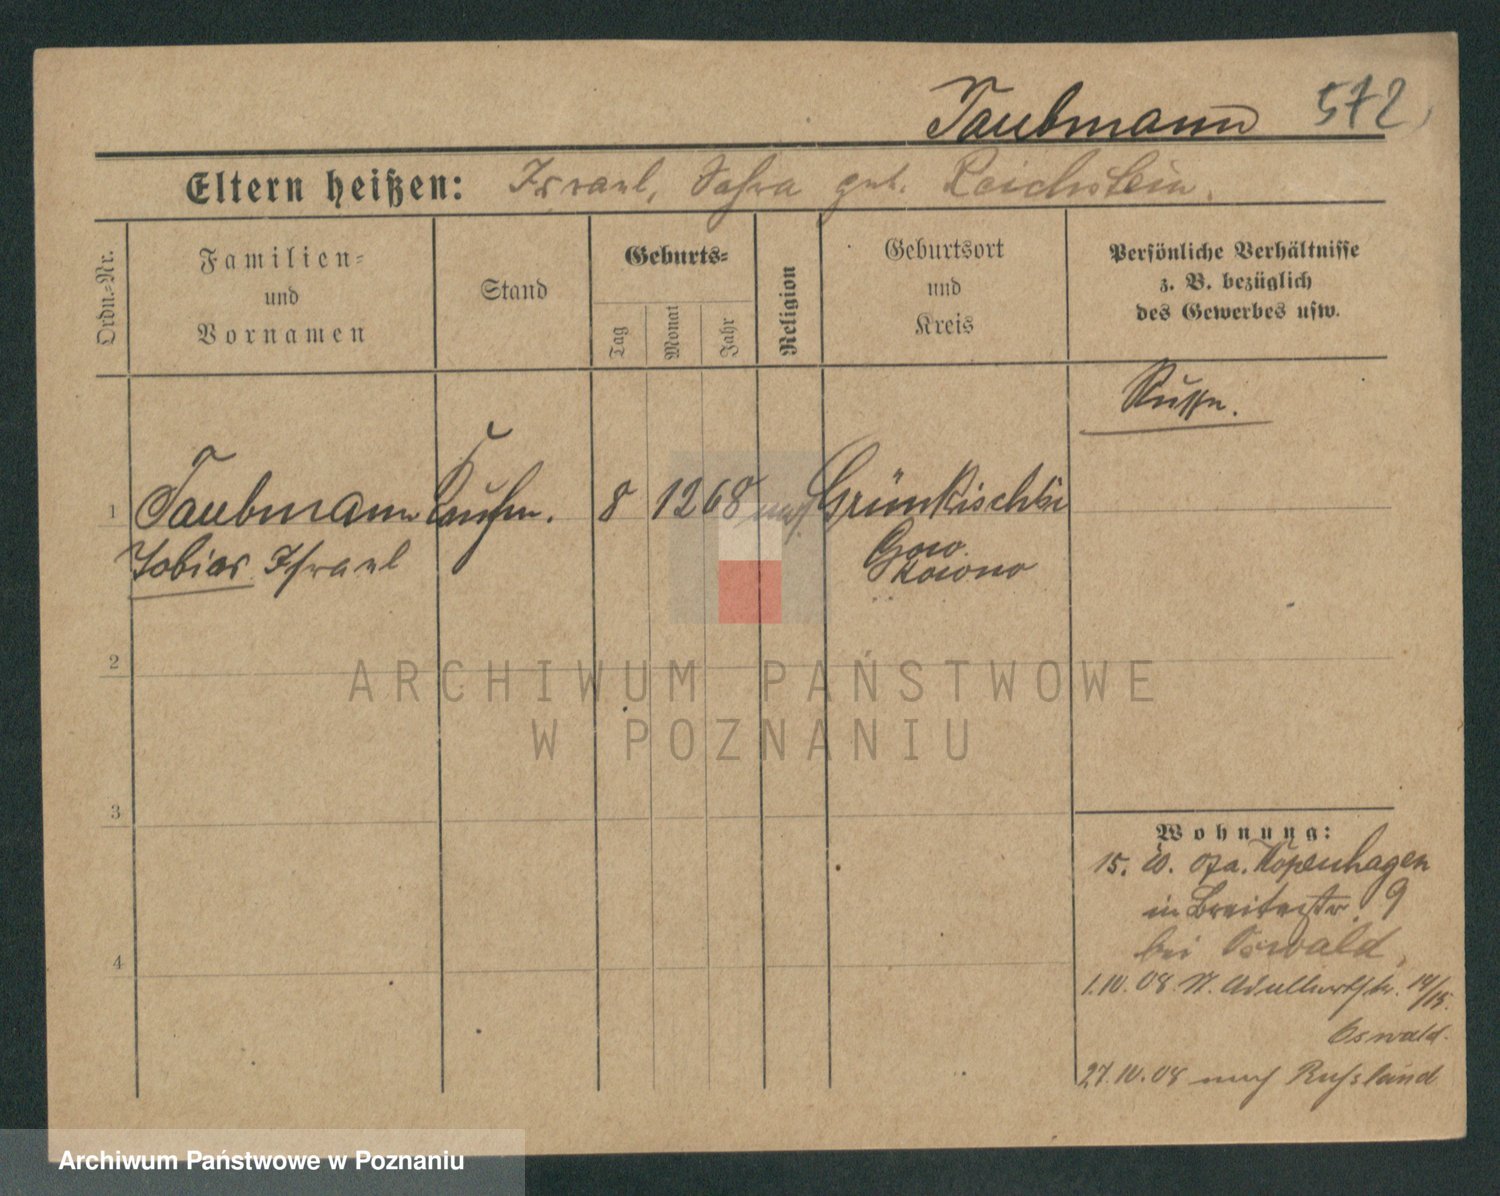 Taubmann 572
Eltern heißen: Israel, Sahra geb. Reichstein.
Ordn.-Nr.
Familien-
und
Vornamen
Stand
Geburts-
Tag
Monat
Jahr
Religion
Geburtsort
und
Kreis
Persönliche Verhältnisse
z. B. bezüglich
des Gewerbes usw.
Russe.
1 Taubmann Kaufm. 8 12 68 mos. Grünkischki
Tobias Israel Gow.
Kowno
2
ARCHIWUM PAŃSTWOWE
W POZNANIU
3
4
Wohnung:
15. 10. 07 a. Kopenhagen
in Breitestr. 9
bei Oswald,
1.10.08 N. 14/15.
Oswald.
27.10.08 nach Russland
Archiwum Państwowe w Poznaniu